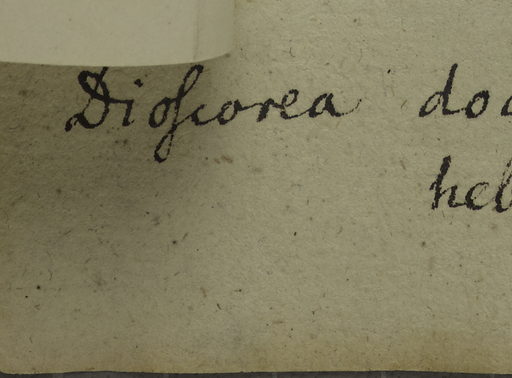 Dioſcorea do
hel